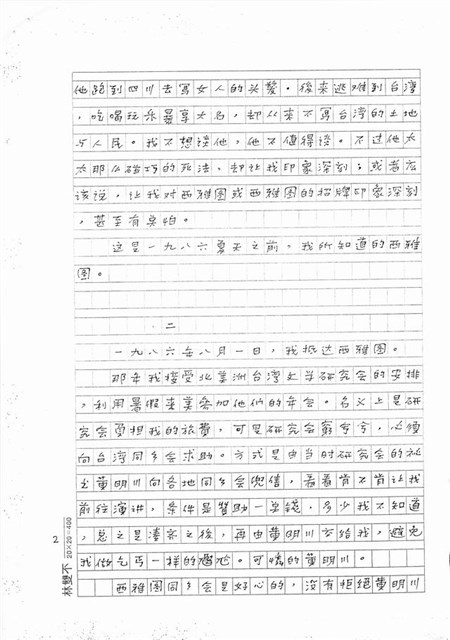 他跑到四川去寫女人的头髮。後来逃难到台湾
,吃喝玩乐最享大名,却从来不写台湾的土地
与人民。我不想谈他,他不值得谈。不过他太
太那么巧的死法,却让我印象深刻;或者应
该说,让我对西雅圖或西雅圖的招牌印象深刻
,甚至有臭怕。
这是一九八六夏天之前,我所知道的西雅
圖。
二
一九八六年八月一日,我抵达西雅圖。
那年我接受北美洲台湾文学研究会的安排
,利用暑假来美参加他们的年会。名义上是研
究会负担我的旅费,可是研究会窮兮兮,必须
向台湾同乡会求助。方式是由当时研究会的秘
书黄明川向各地同乡会兜售,看看肯不肯让我
前往演讲,条件是赞助一点钱。多少我不知道
,总之是凑齐之後,再由黄明川交给我,避免
我像乞丐一样的尴尬。可怜的黄明川。
西雅圖同乡会是好心的,没有拒绝黄明川
2
20×20=400
林雙不